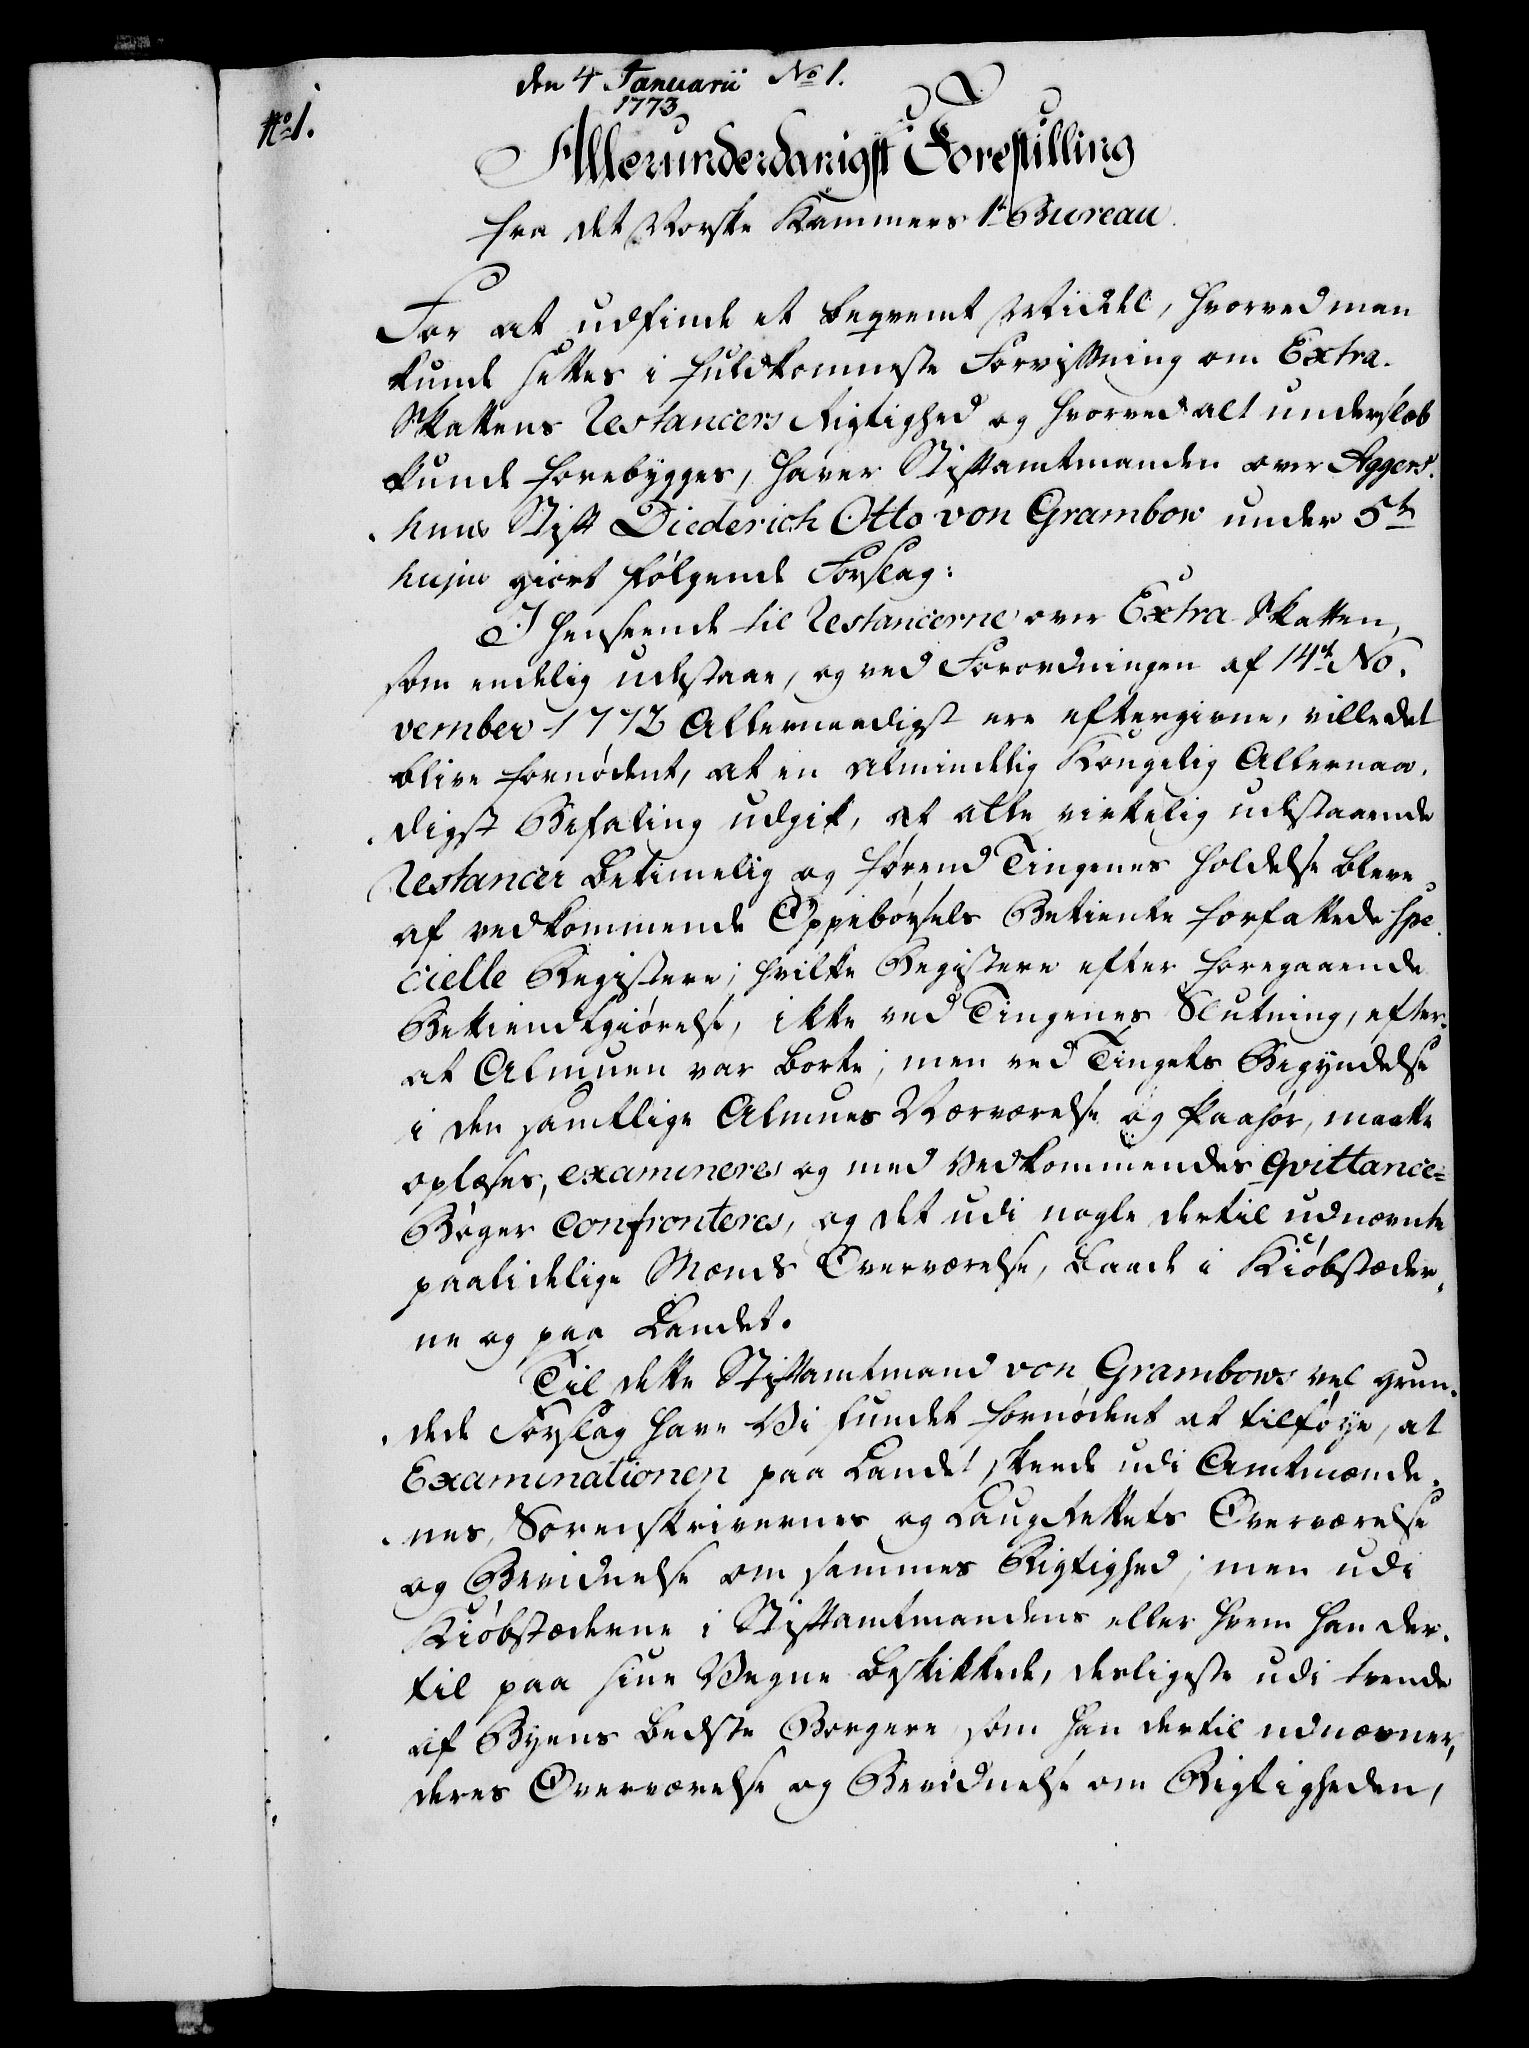 den 4 Januarii No 1.
1773
No 1.
Allerunderdanigst Forestilling
fra det Norske Kammers 1te Bureau.
For at udfinde et beqvemt Middel, hvorved man
kunde settes i fuldkomneste Forvisning om Extra-
Skattens Restancers Rigtighed og hvorved alt underslæb
kunde forebygges, haver Stiftamtmanden over Aggers-
huus Stift Diederich Otto von Grambow under 5te
hujus giort følgende Forslag:
I henseende til Restancerne over Extra Skatten,
som endelig udestaae, og ved Forordningen af 14de No-
vember 1772 Allernaadigst ere eftergivne, ville det
blive fornødent, at en almindelig Kongelig Allernaa-
digst Befaling udgik, at alle virkelig udestaaende
Restancer betimelig og førend Tingenes holdelse bleve
af vedkommende Oppebørsels Betiente forfattede spe-
cielle Registere; hvilke Registere efter foregaaende
Bekiendtgiørelse, ikke ved Tingenes Slutning, efter-
at Almuen var borte; men ved Tingets Begyndelse
i den samtlige Almues Nærværelse og Paahør, maatte
oplæses, examineres og med Vedkommendes Qvittance-
Bøger confronteres, og det udi nogle dertil udnævnte
paalidelige Mænds Overværelse, baade i Kiøbstæder-
ne og paa Landet.
Til dette Stiftamtmand von Grambows vel grun-
dede Forslag have Vi fundet fornødent at tilføye, at
Examinationen paa Landet skeede udi Amtmænde-
nes, Sorenskrivernes og Laugrettets Overværelse
og Bevidnelse om sammes Rigtighed; men udi
Kiøbstæderne i Stiftamtmandens eller hvem han der-
til paa sine Vegne beskikkede, desligeste udi trende
af Byens bedste Borgere som han dertil udnævner,
deres Overværelse og Bevidnelse om Rigtigheden,